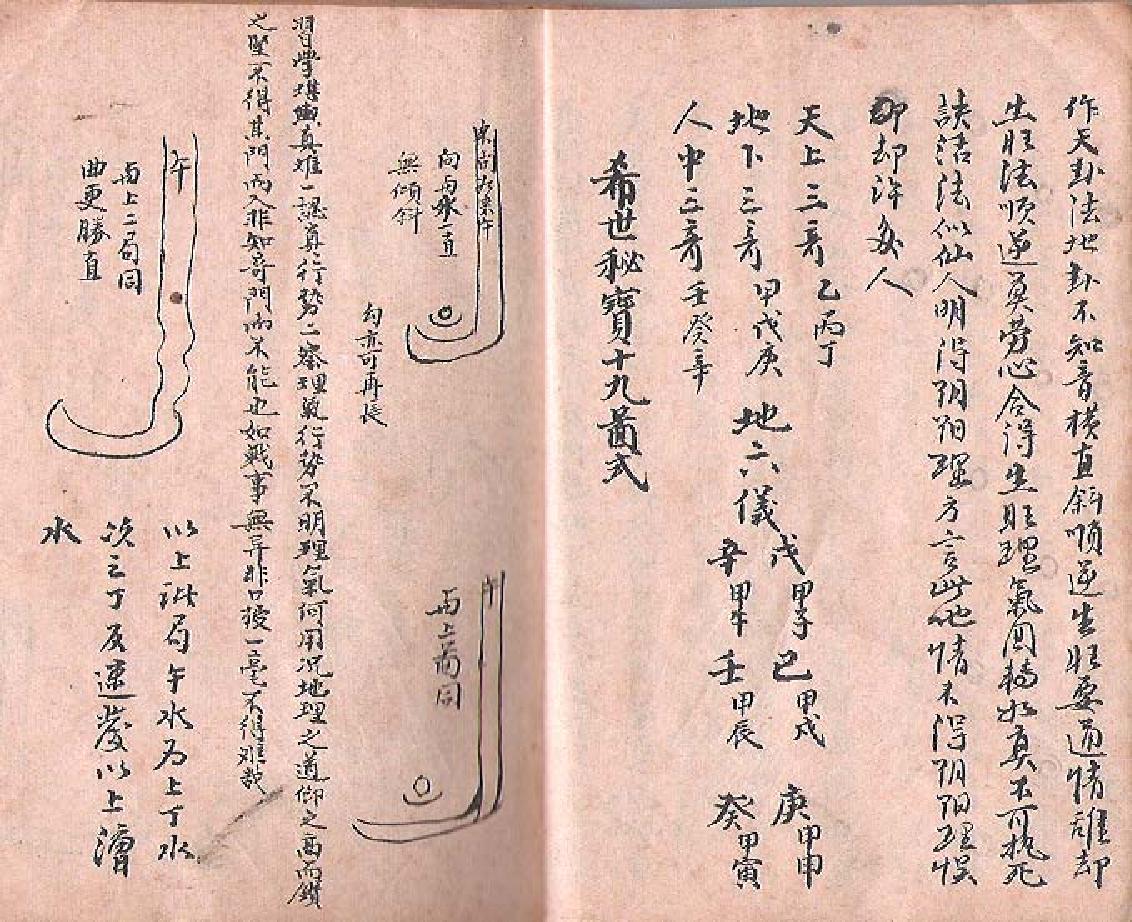 作天卦法地卦不知音横直斜順逆生旺要通情離却
生旺法順逆莫劳心合得生旺理氣団轉水真不可执死
訣活法似仙人明得阴阳理方言此地情未得阴阳理悮
却許多人
天上三奇乙丙丁
地下三奇甲戊庚
人中三奇壬癸辛
地六儀戊甲子己甲戌庚甲申
辛甲午壬甲辰癸甲寅
希世秘寶十九啚式
向與水一直
無傾斜
勾亦可再長
午
與上啚同
習學堪輿真难一認真行势二察理氣行势不明理氣何用况地理之道仰之高而鑽
之堅不得其門而入非知奇門而不能也如戰事無异非口授一毫不得难哉
午
與上二局同
曲更勝直
以上訨局午水为上丁水
次之丁反速發以上漕
水